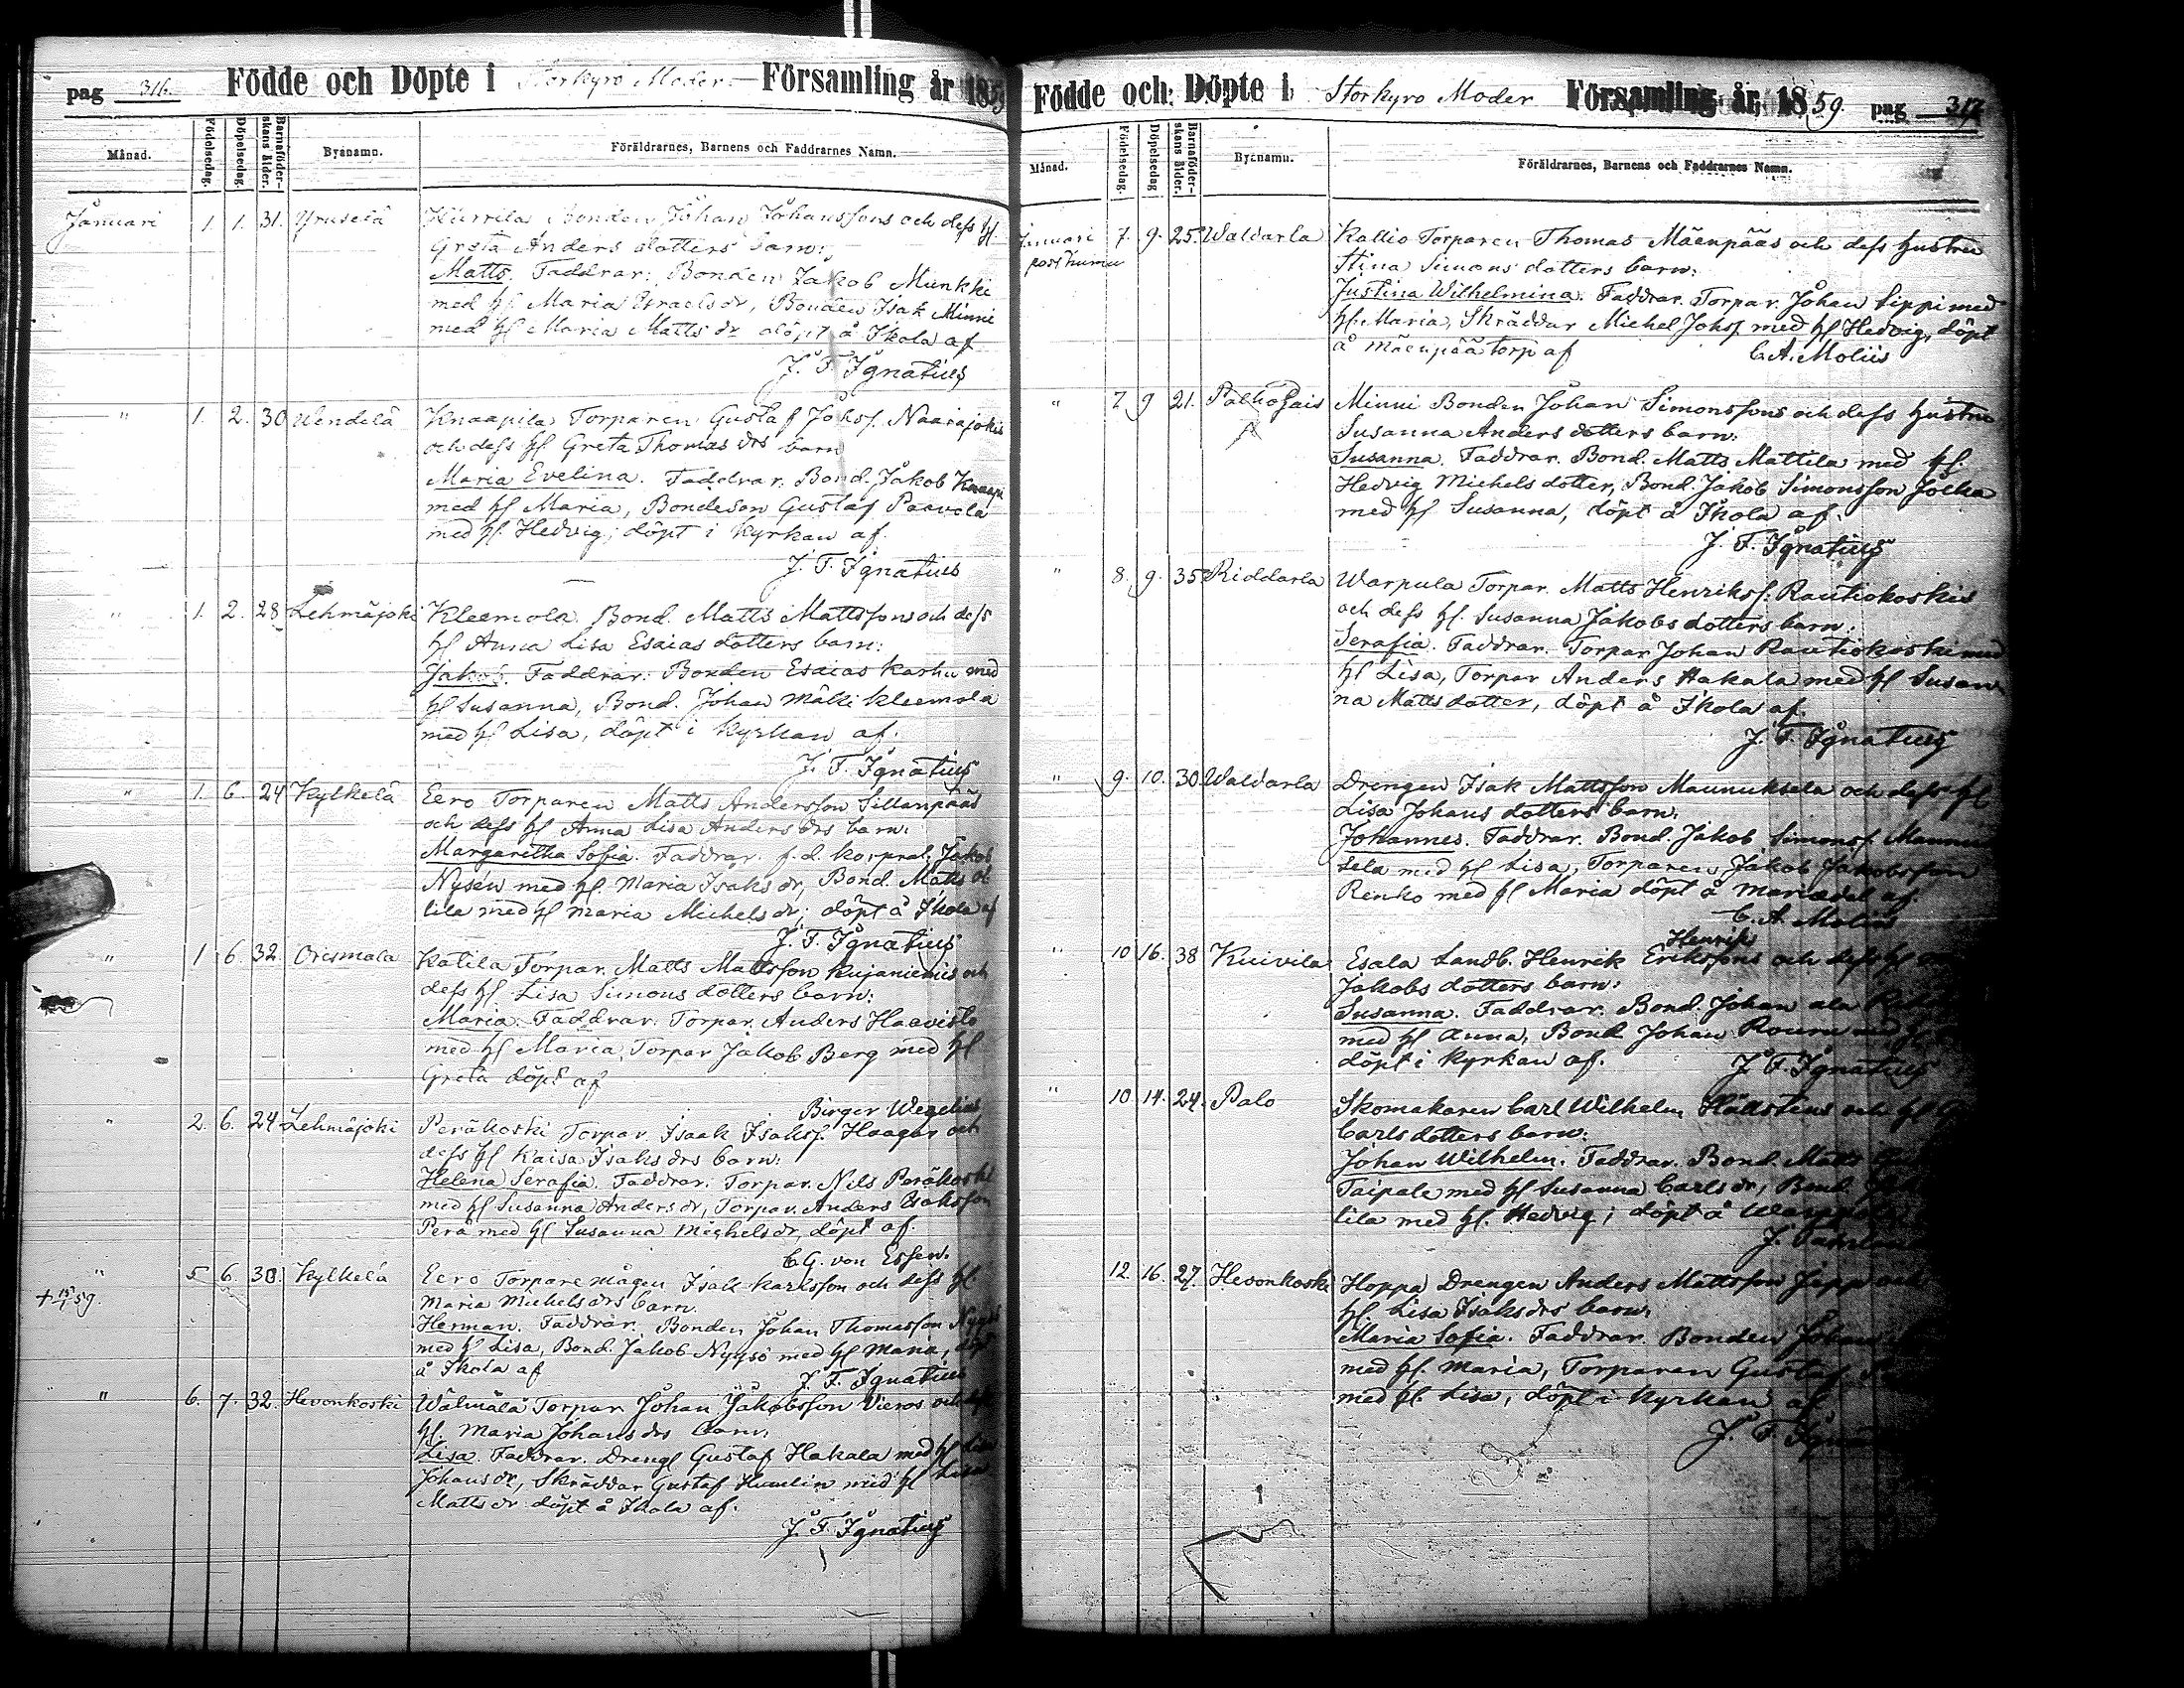 pag 316. Födde och Döpte i Storkyro Moder Församling år 1859
Månad. Födelsedag. Döpelsedag. Barnaföderskans ålder. Bynamn. Föräldrarnes, Barnens och Faddrarnes Namn.
Januari 1. 1. 31. Yruselä Bonden Johan Johanssons och dess hu.
Greta Anders dotters barn:
Matts. Faddrar: Bonden Jakob Munkki
med hu Maria Israelsdr, Bonden Isak Minni
med hu Maria Matts dr döpt å Ikola af
J. F. Ignatius
" 1. 2. 30 Wendelä Knaapila Torparen Gustaf Johsf. Naarajokis
och dess hu. Greta Thomas drs barn
Maria Evelina. Faddrar. Bond. Jakob Knaapi
med hu Maria, Bondeson Gustaf Paavola
med hu. Hedvig; döpt i Kyrkan af.
J. F. Ignatius
" 1. 2. 28 Lehmäjoki Kleemola Bond. Matts Mattssons och dess
hu Anna Lisa Esaias dotters barn:
Jakob. Faddrar: Bonden Esaias Karhu med
hu Susanna, Bond. Johan Mäki Kleemola
med hu Lisa, döpt i Kyrkan af.
J. F. Ignatius
" 1. 6. 24 Kylkelä Eero Torparen Matts Andersson Sillanpääs
och dess hu Anna Lisa Anders drs barn:
Margaretha Sofia. Faddrar. f. d. Korpral. Jakob
Nysén med hu. Maria Isaks dr, Bond. Matts
lila med hu Maria Michels dr; döpt å Ikola af
J. F. Ignatius
" 1 6. 32. Orismala Katila Torpar. Matts Mattsson Kujaniemis och
dess hu. Lisa Simons dotters barn:
Maria. Faddrar: Torpar. Anders Haavisto
med hu Maria, Torpar Jakob Berg med hu
Greta döpt af
Birger Wegelius
" 2. 6. 24 Lehmäjoki Peräkoski Torpar. Isaak Isaksf. Haagas och
dess hu Kaisa Isaks drs barn:
Helena Serafia. Faddrar. Torpar. Nils Peräkoski
med hu Susanna Anders dr, Torpar. Anders Isaksson
Perä med hu Susanna Michels dr, döpt af.
C. G. von Essen.
" 5 6. 30. Kylkelä Eero Torpare mågen Isak Karlsson och dess hu
+ 15/1 59. Maria Michels drs barn.
Herman. Faddrar. Bonden Johan Thomasson
med hu Lisa, Bond. Jakob Nygso med hu Maria, döpt
å Ikola af
J. F. Ignatius
" 6. 7. 32. Hevonkoski Wälmälä Torpar Johan Jakobsson Vieros och dess
hu. Maria Johans drs barn:
Lisa. Faddrar. Dreng Gustaf Hakala med hu Lisa
Johans dr, Skräddar Gustaf Humlin med hu Lisa
Matts dr döpt å Ikola af.
J. F. Ignatius
Födde och Döpte i Storkyro Moder Församling år 1859. pag 317
Månad. Födelsedag. Döpelsedag Barnaföderskans ålder. Bynamn. Föräldrarnes, Barnens och Faddrarnes Namn.
Januari 7. 9. 25. Waldarla Kallio Torparen Thomas Mäenpääs och dess hustru
posthumu Stina Simons dotters barn:
Justina Wilhelmina. Faddrar. Torpar. Johan Sippi med
hu. Maria, Skräddar Michel Johsf med hu Hedvig, döpt
å Mäenpää torp af C. A. Moliis
" 7. 9 21. Palhojais Minni Bonden Johan Simonssons och dess hustru
Susanna Anders dotters barn:
Susanna. Faddrar. Bond. Matts Mattila med hu.
Hedvig Michels dotter, Bond. Jakob Simonsson Jolka
med hu Susanna, döpt å Ikola af.
J. F. Ignatius
" 8. 9. 35 Riddarla Warpula Torpar. Matts Henriksf. Rautiokoskis
och dess hu. Susanna Jakobs dotters barn:
Serafia. Faddrar. Torpar Johan Rautiokoski med
hu Lisa, Torpar Anders Hakala med hu Susan
na Matts dotter, döpt å Ikola af.
J. F. Ignatius
" 9. 10. 30 Waldarla Drengen Isak Mattsson Maunuksela och dess hu
Lisa Johans dotters barn:
Johannes. Faddrar. Bond. Jakob Simonsf. Maunuk
sela med hu Lisa, Torparen Jakob Jakobsson
Renko med hu Maria döpt å Mariedal af.
C. A. Moliis
Henrik
" 10 16. 38 Kuivila Esala Landb. Henrik Erikssons och dess hu
Jakobs dotters barn:
Susanna. Faddrar. Bond. Johan ala
med hu Anna, Bond Johan Rouru med hu
döpt i Kyrkan af. J. F. Ignatius
" 10 14. 24. Palo Skomakaren Carl Wilhelm Hällstens och hu
Carls dotters barn:
Johan Wilhelm. Faddrar. Bond. Matts
Taipale med hu Susanna Carls dr, Bond.
lila med hu. Hedvig; döpt å
J.
12. 16. 27. Hevonkoski Hoppa Drengen Anders Mattsson
hu. Lisa Isaks drs barn:
Maria Sofia. Faddrar. Bonden Johan
med hu. Maria, Torparen Gustaf
med hu. Lisa, döpt i Kyrkan af
J. F.